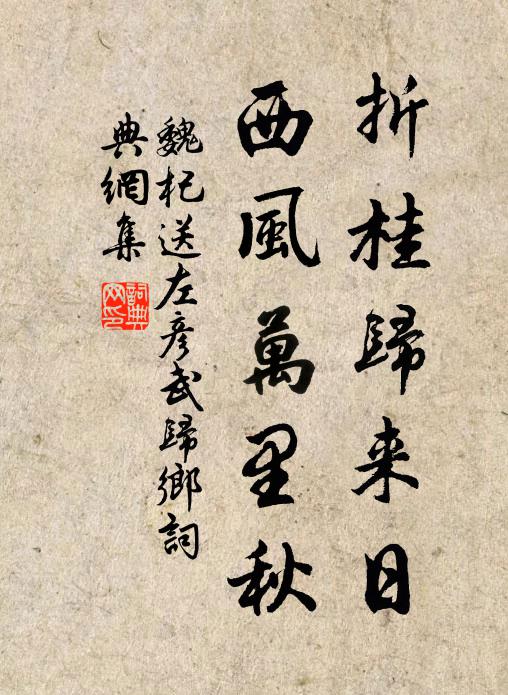 折桂歸来日
西風萬里秋
魏杞送左彦武歸鄉詞
典網集
詞典
网印